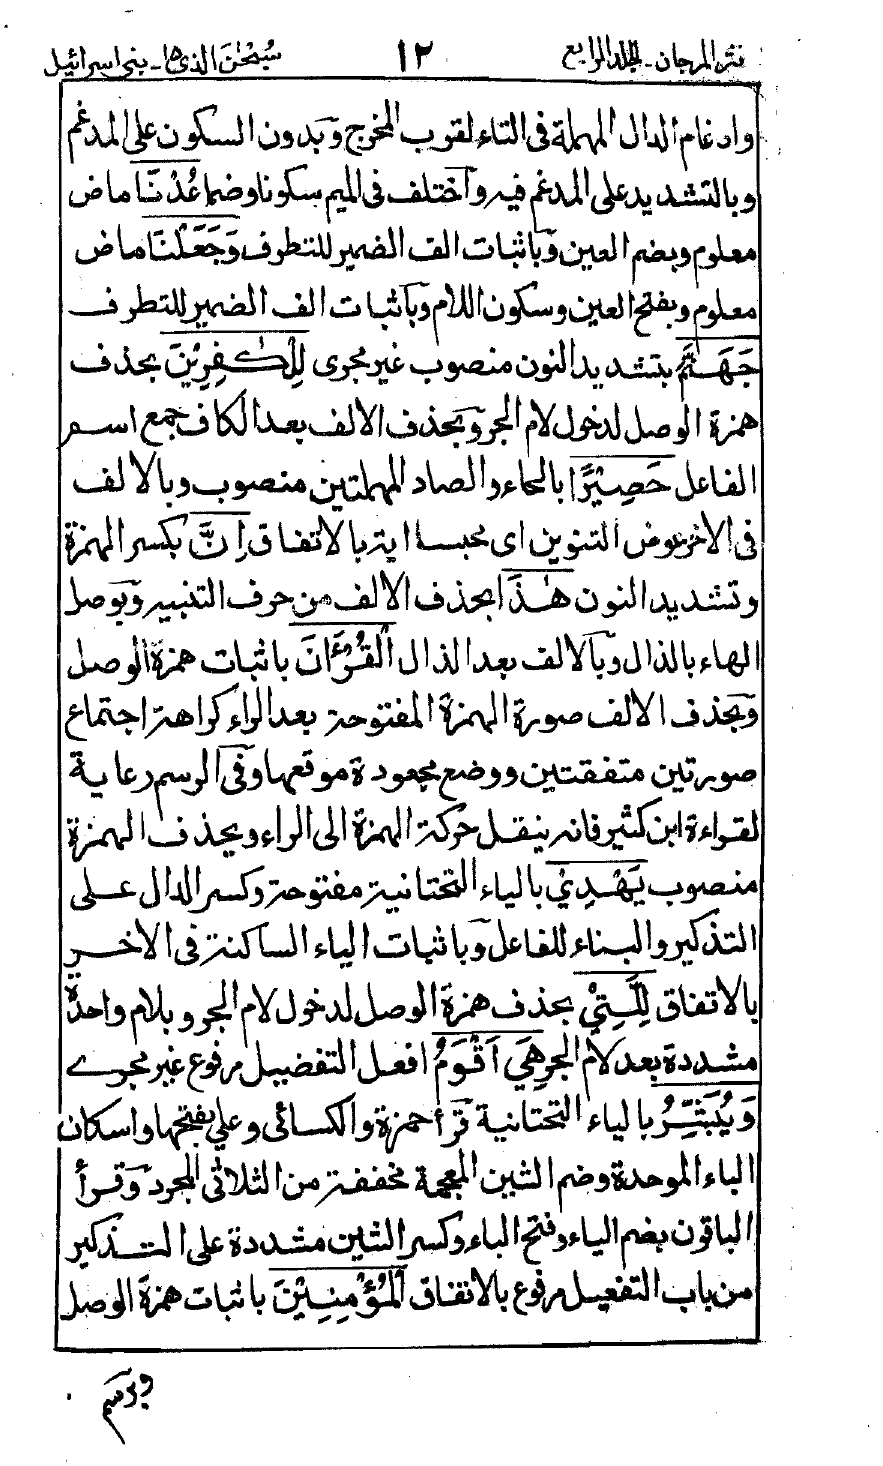 نثر المرجان - المجلد الرابع ١٢ سبحٰن الذی ١٥ - بنی اسرائیل
وادغام الدال المهملة فى التاء لقرب المخرج وبدون السكون على المدغم
وبالتشديد على المدغم فيه واختلف فى الميم سكونا وضما عُدْنَا ماض
معلوم وبضم العين وباثبات الف الضمير للتطرف وَجَعَلْنَا ماض
معلوم وبفتح العين وسكون اللام وباثبات الف الضمير للتطرف
جَهَنَّمَ بتشديد النون منصوب غير مجرى لِلْكٰفِرِيْنَ بحذف
همزة الوصل لدخول لام الجر وبحذف الالف بعد الكاف جمع اسم
الفاعل حَصِيْرًا بالحاء والصاد المهملتين منصوب وبالالف
فى الاخر عوض التنوين اى محبسا اية بالاتفاق اِنَّ بكسر الهمزة
وتشديد النون هٰذَا بحذف الالف من حرف التنبيه وبوصل
الهاء بالذال وبالالف بعد الذال الْقُرْاٰنَ باثبات همزة الوصل
وبحذف الالف صورة الهمزة المفتوحة بعد الراء كراهة اجتماع
صورتين متفقتين ووضع مجعودة موقعها وفى الرسم رعاية
لقراءة ابن كثير فانه ينقل حركة الهمزة الى الراء ويحذف الهمزة
منصوب يَهْدِىْ بالياء التحتانية مفتوحة وكسر الدال على
التذكير والبناء للفاعل وباثبات الياء الساكنة فى الاخر
بالاتفاق لِلَّتِىْ بحذف همزة الوصل لدخول لام الجر وبلام واحدة
مشددة بعد لام الجر هِىَ اَقْوَمُ افعل التفضيل مرفوع غير مجرے
وَيُبَشِّرُ بالياء التحتانية قرأ حمزة والكسائى وعلي بفتحها واسكان
الباء الموحدة وضم الشين المعجمة مخففة من الثلاثى المجرد وقرأ
الباقون بضم الياء وفتح الباء وكسر الشين مشددة على التذكير
من باب التفعيل مرفوع بالاتفاق الْمُؤْمِنِيْنَ باثبات همزة الوصل
وبرسم